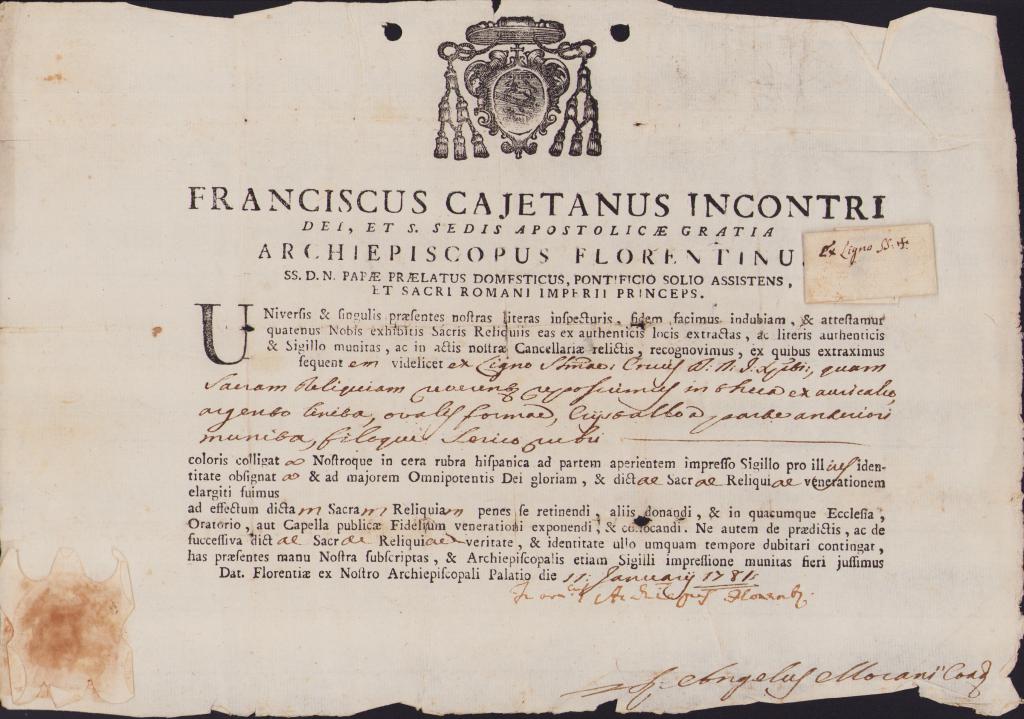 FRANCISCUS CAJETANUS INCONTRI
DEI, ET S. SEDIS APOSTOLICÆ GRATIA
ARCHIEPISCOPUS FLORENTINU
Ex Ligno SS. ✠
SS. D. N. PAPÆ PRÆLATUS DOMESTICUS, PONTIFICIO SOLIO ASSISTENS,
ET SACRI ROMANI IMPERII PRINCEPS.
UNiversis & singulis præsentes nostras literas inspecturis, fidem facimus indubiam, & attestamur
quatenus Nobis exhibitis Sacris Reliquiis eas ex authenticis locis extractas, ac literis authenticis
& Sigillo munitas, ac in actis nostræ Cancellariæ relictis, recognovimus, ex quibus extraximus
sequentem videlicet ex Ligno Crucis D. N. J. quam
Sacram Reliquiam reverenter reposuimus in theca ex auricalco
argento linita, ovalis formae, Crystallo parte anteriori
munita, filoque Serico rubri
coloris colligat Nostroque in cera rubra hispanica ad partem aperientem impresso Sigillo pro illius iden-
titate obsignat & ad majorem Omnipotentis Dei gloriam, & dictae Sacrae Reliquiae venerationem
elargiti fuimus
ad effectum dictam Sacram Reliquiam penes se retinendi, aliis donandi, & in quacumque Ecclesia,
Oratorio, aut Capella publicæ Fidelium venerationi exponendi, & collocandi. Ne autem de prædictis, ac de
successiva dictae Sacrae Reliquiae veritate, & identitate ullo umquam tempore dubitari contingat,
has præsentes manu Nostra subscriptas, & Archiepiscopalis etiam Sigilli impressione munitas fieri jussimus
Dat. Florentiæ ex Nostro Archiepiscopali Palatio die 11. January
Angelus Morani